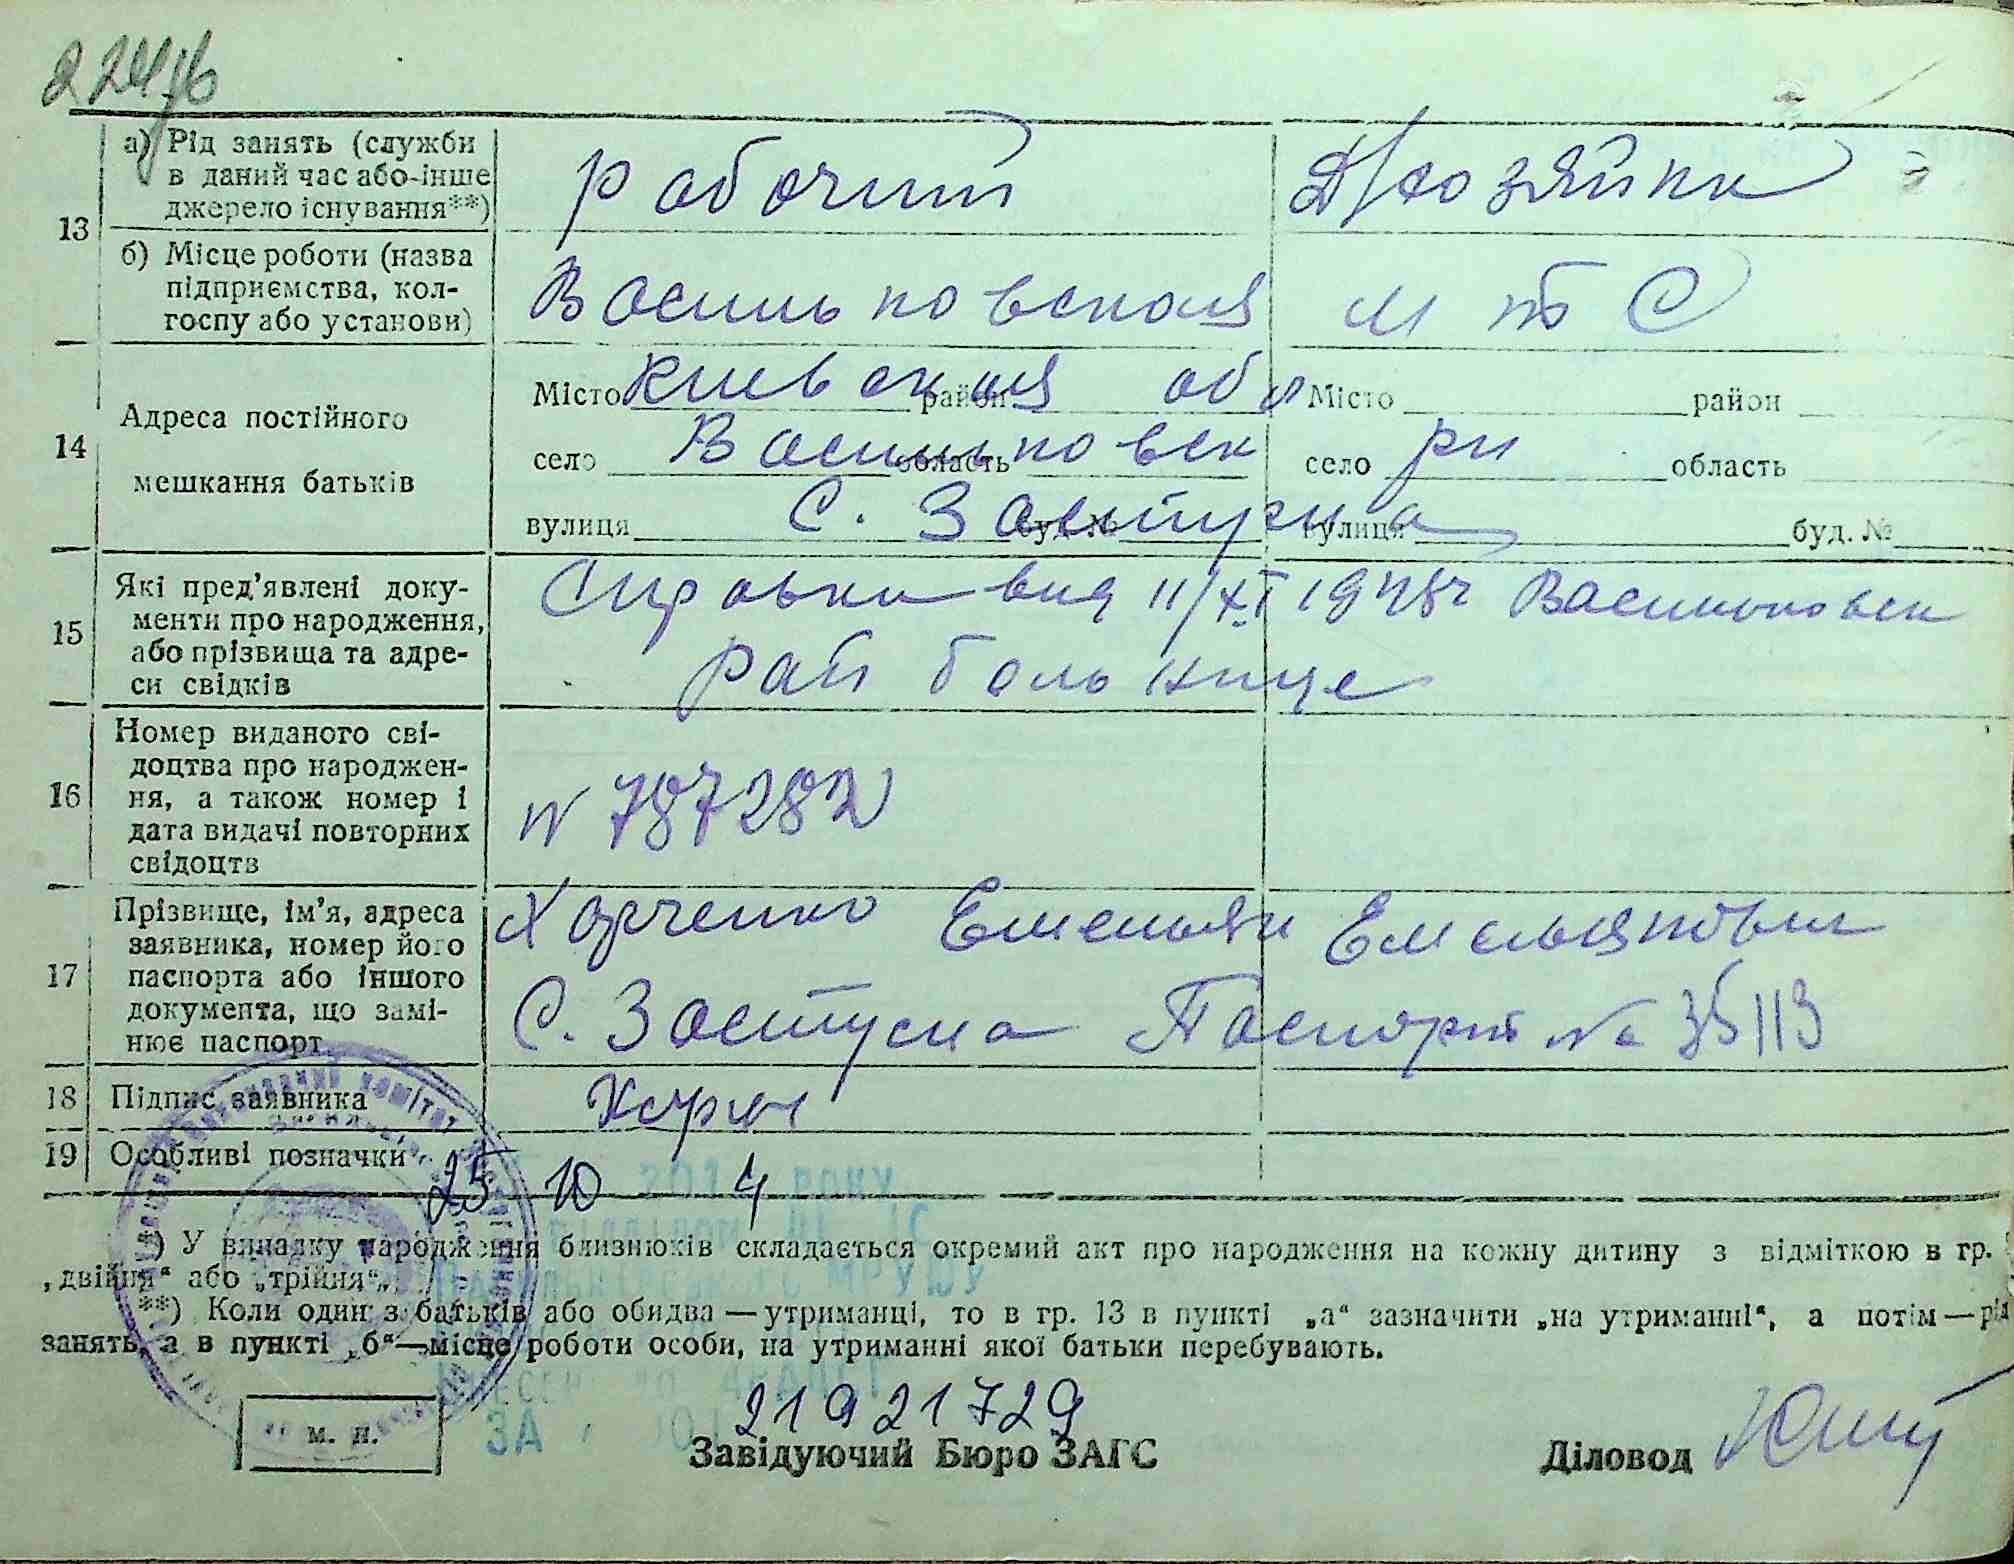 а) Рід занять (служби
в даний час або інше
джерело існування**)
рабочий
Д/хозяйка
13
б) Місце роботи (назва
підприємства, кол-
госпу або установи)
Васильковская М Т С
14
Адреса постійного
мешкання батьків
Місто Киевская район обл Місто район
село Васильковск область село рн область
вулиця С. Застугна буд. № вулиця буд. №
15
Які пред’явлені доку-
менти про народження,
або прізвища та адре-
си свідків
Справка выд 11/XI 1948г Васильковск
рай больнице
16
Номер виданого сві-
доцтва про народжен-
ня, а також номер і
дата видачі повторних
свідоцтв
N 787282
17
Прізвище, ім’я, адреса
заявника, номер його
паспорта або іншого
документа, що замі-
нює паспорт
Харченко Емельян Емельянович
С. Застугна Паспорт № 35113
18 Підпис заявника
19 Особливі позначки
25 10 4
2014 року
*) У випадку народження близнюків складається окремий акт про народження на кожну дитину з відміткою в гр.
„двійня“ або „трійня“.
**) Коли один з батьків або обидва — утриманці, то в гр. 13 в пункті „а“ зазначити „на утриманні“, а потім — рід
занять, а в пункті „б“ — місце роботи особи, на утриманні якої батьки перебувають.
21921729
м. п.
Завідуючий Бюро ЗАГС
Діловод